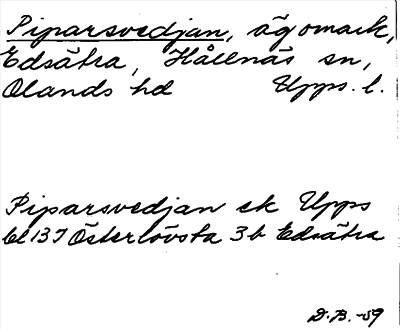 Piparsvedjan, ägomark,
Edsätra, Hållnäs sn,
Olands hd Upps. l.
Piparsvedjan ek Upps
bl 137 Österlövsta 3b Edsätra
D.B. -59